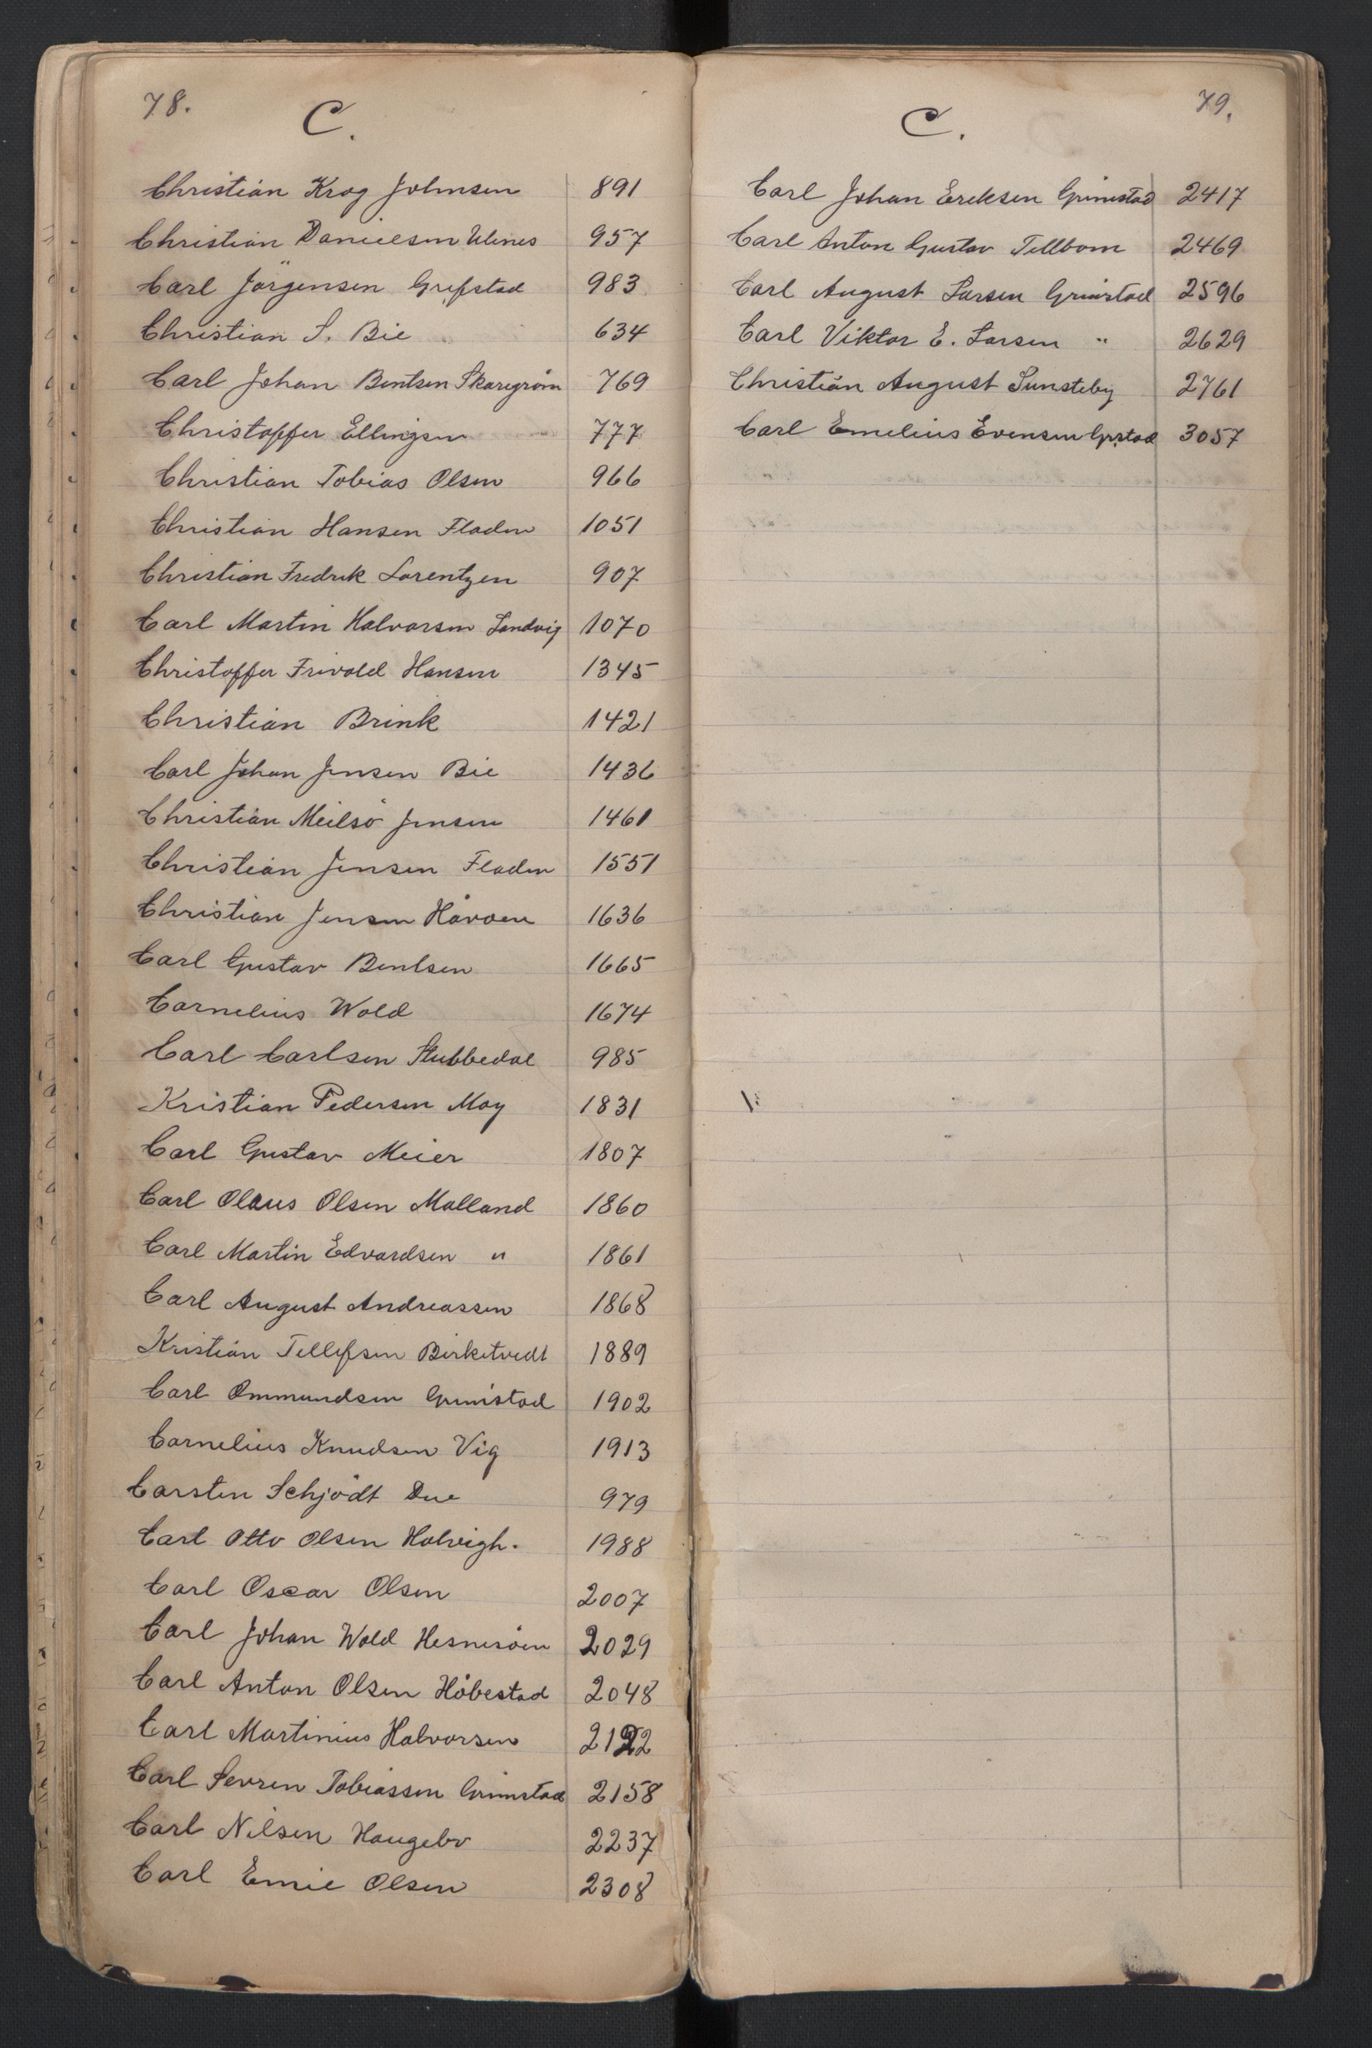 78.
C.
Christian Krog Johnsen 891
Christian Danielsen Ulenes 957
Carl Jörgensen Grefstad 983
Christian S. Bie 634
Carl Johan Bentsen Skaregrøm 769
Christoffer Ellingsen 777
Christian Tobias Olsen 966
Christian Hansen Fladen 1051
Christian Fredrik Lorentzen 907
Carl Martin Halvorsen Landvig 1070
Christoffer Frivold Hansen 1345
Christian Brink 1421
Carl Johan Jensen Bie 1436
Christian Meilsö Jensen 1461
Christian Jensen Fladen 1551
Christian Jensen Håvoen 1636
Carl Gustav Bentsen 1665
Cornelius Wold 1674
Carl Carlsen Stubbedal 985
Kristian Pedersen Moy 1831
Carl Gustav Meier 1807
Carl Olaus Olsen Molland 1860
Carl Martin Edvardsen " 1861
Carl August Andreassen 1868
Kristian Tellefsen Birketvedt 1889
Carl Ommundsen Grimstad 1902
Cornelius Knudsen Vig 1913
Carsten Schjödt Due 979
Carl Otto Olsen Holvigh. 1988
Carl Oscar Olsen 2007
Carl Johan Wold Hesnesöen 2029
Carl Anton Olsen Håbestad 2048
Carl Martinius Halvorsen 2122
Carl Severen Tobiassen Grimstad 2158
Carl Nilsen Haugebo 2237
Carl Emil Olsen 2308
79.
C.
Carl Johan Ereksen Grimstad 2417
Carl Anton Gustav Tellbom 2469
Carl August Larsen Grimstad 2596
Carl Viktor E. Larsen " 2629
Christian August Sunsteby 2761
Carl Emelius Evensen Grstad 3057